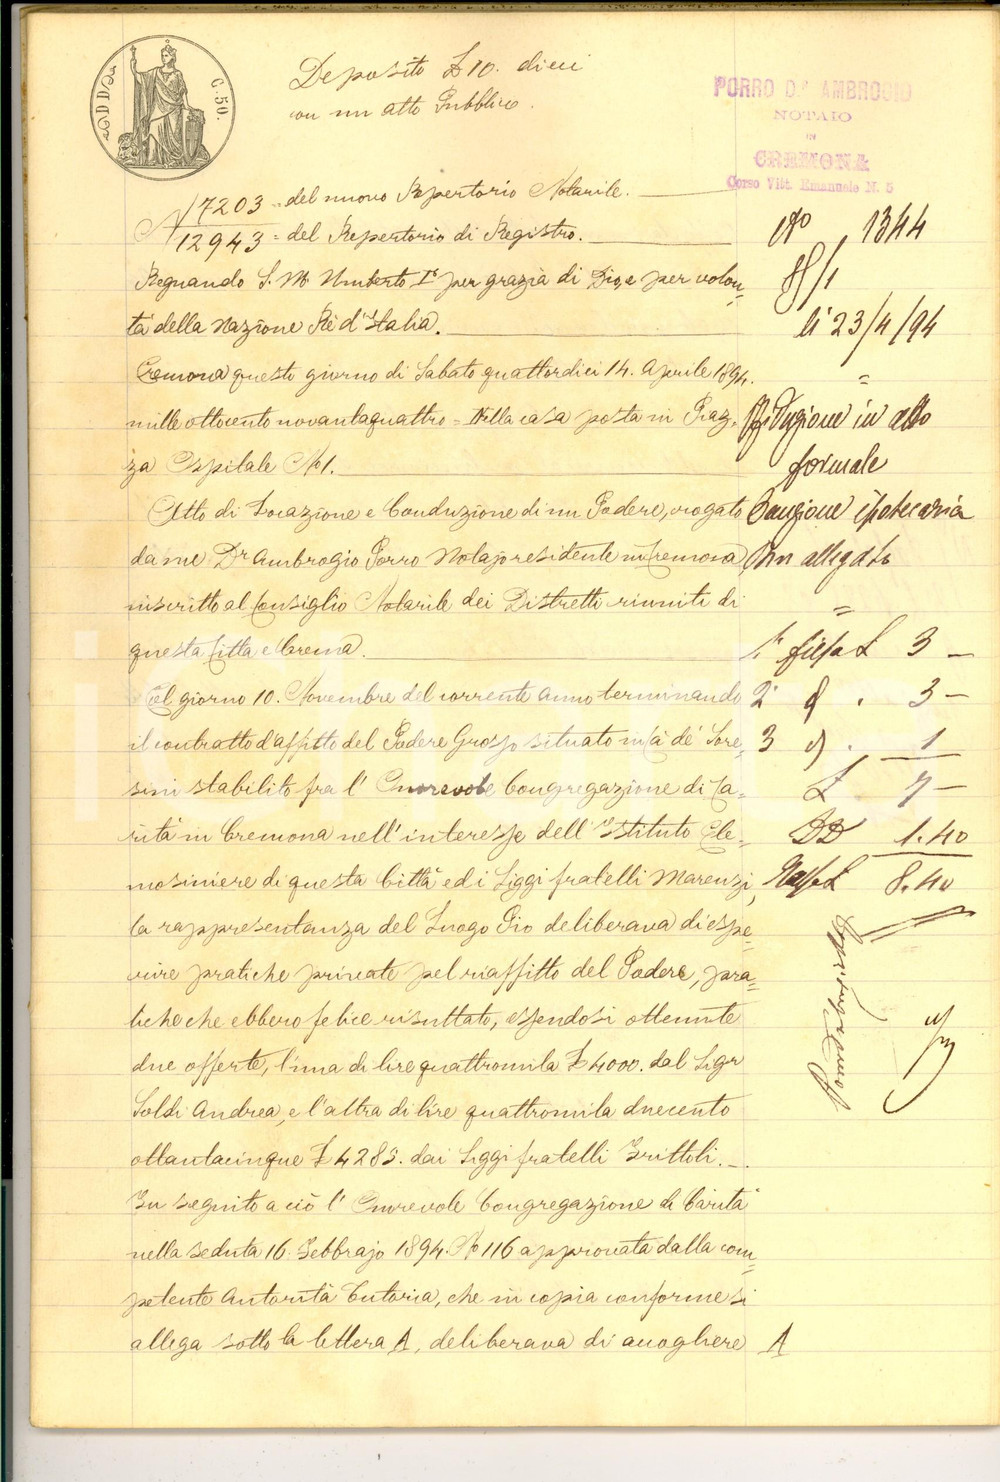 Deposito £ 10. dieci
su un atto Pubblico.
C. 50.
PORRO D.r AMBROGIO
NOTAIO
IN
CREMONA
Corso Vitt. Emanuele N. 5
N 7203 = del nuovo Repertorio Notarile.
12943 = del Repertorio di Registro.
No 1344
Regnando S. M. Umberto Io per grazia di Dio, e per volon=
tà della Nazione Rè d'Italia.
li 23/4/94
Cremona questo giorno di Sabato quattordici 14. Aprile 1894.
mille ottocento novantaquattro = Nella casa posta in Piaz=
za Ospitale No 1.
Riduzione in atto
formale
Atto di Locazione e Conduzione di un Podere, rogato
Cauzione ipotecaria
da me Dr Ambrogio Porro Notajo residente in Cremona
Un allegato
inscritto al Consiglio Notarile dei Distretti riuniti di
questa Città e Crema.
1a fissa £ 3 —
Col giorno 10. Novembre del corrente anno terminando
2a d. 3 —
il contratto d'affitto del Podere Grosso situato in Cà de' Sore=
3 d. 1
sini stabilito fra l'Onorevole Congregazione di Ca=
£ 7 —
rità in Cremona nell'interesse dell'Istituto Ele=
DD 1.40
mosiniere di questa Città ed i Siggi fratelli Marenzi,
£ 8.40
la rappresentanza del Luogo Pio deliberava di espe=
rire pratiche private pel riaffitto del Podere, pra=
tiche che ebbero felice risultato, essendosi ottenute
due offerte, l'una di lire quattromila £ 4000. dal Sigr
Soldi Andrea, e l'altra di lire quattromila duecento
ottantacinque £ 4285. dai Siggi fratelli Grittoli. —.
In seguito a ciò l'Onorevole Congregazione di Carità
nella seduta 16 Febbrajo 1894. No 116 approvata dalla com=
petente Autorità Tutoria, che in copia conforme si
allega sotto la lettera A, deliberava di accogliere
A